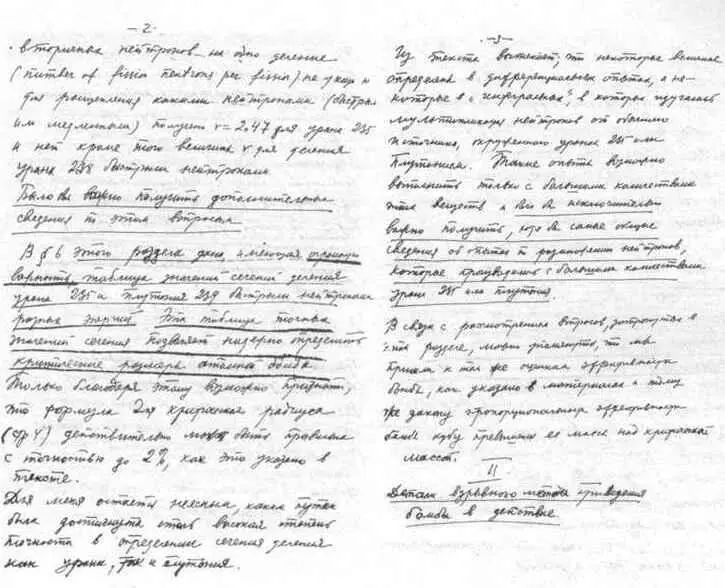 — 2 —
вторичных нейтронов на одно деление
(number of fission neutrons per fission) не указано
для расщепления какими нейтронами (быстрыми
или медленными) получено ν = 2.47 для урана 235
и нет кроме того величины ν для деления
урана 238 быстрыми нейтронами
Было бы важно получить дополнительные
сведения по этим вопросам
В § 6 этого раздела дана, имеющая огромную
важность, таблица значений сечений деления
урана 235 и плутония 239 быстрыми нейтронами
разных энергий. Эта таблица точных
значений сечения позволяет надежно определить
критические размеры атомной бомбы.
Только благодаря этому возможно признать,
что формула для критического радиуса
(стр 4) действительно может быть правильна
с точностью до 2%, как это указано в
тексте.
Для меня остается неясным, каким путем
была достигнута столь высокая степень
точности в определении сечения деления
как урана, так и плутония.
— 3 —
Из текста вытекает, что некоторые величины
определены в дифференциальных опытах, а не-
которые в "интегральных", в которых изучалась
мультипликация нейтронов от обычного
источника, окруженного ураном 235 или
плутонием. Такие опыты возможно
выполнить только с большими количествами
этих веществ и было бы исключительно
важно получить, хотя бы самые общие
сведения об опытах по размножению нейтронов,
которые производились с большими количествами
урана 235 или плутония.
В связи с рассмотрением вопросов, затронутых в
этом разделе, можно заметить, что мы
пришли к той же оценке эффективности
бомбы, как указано в материалах и тому
же закону пропорциональности эффективности
бомбы кубу превышения ее массы над критической
массой.
II
Детали взрывного метода приведения
бомбы в действие